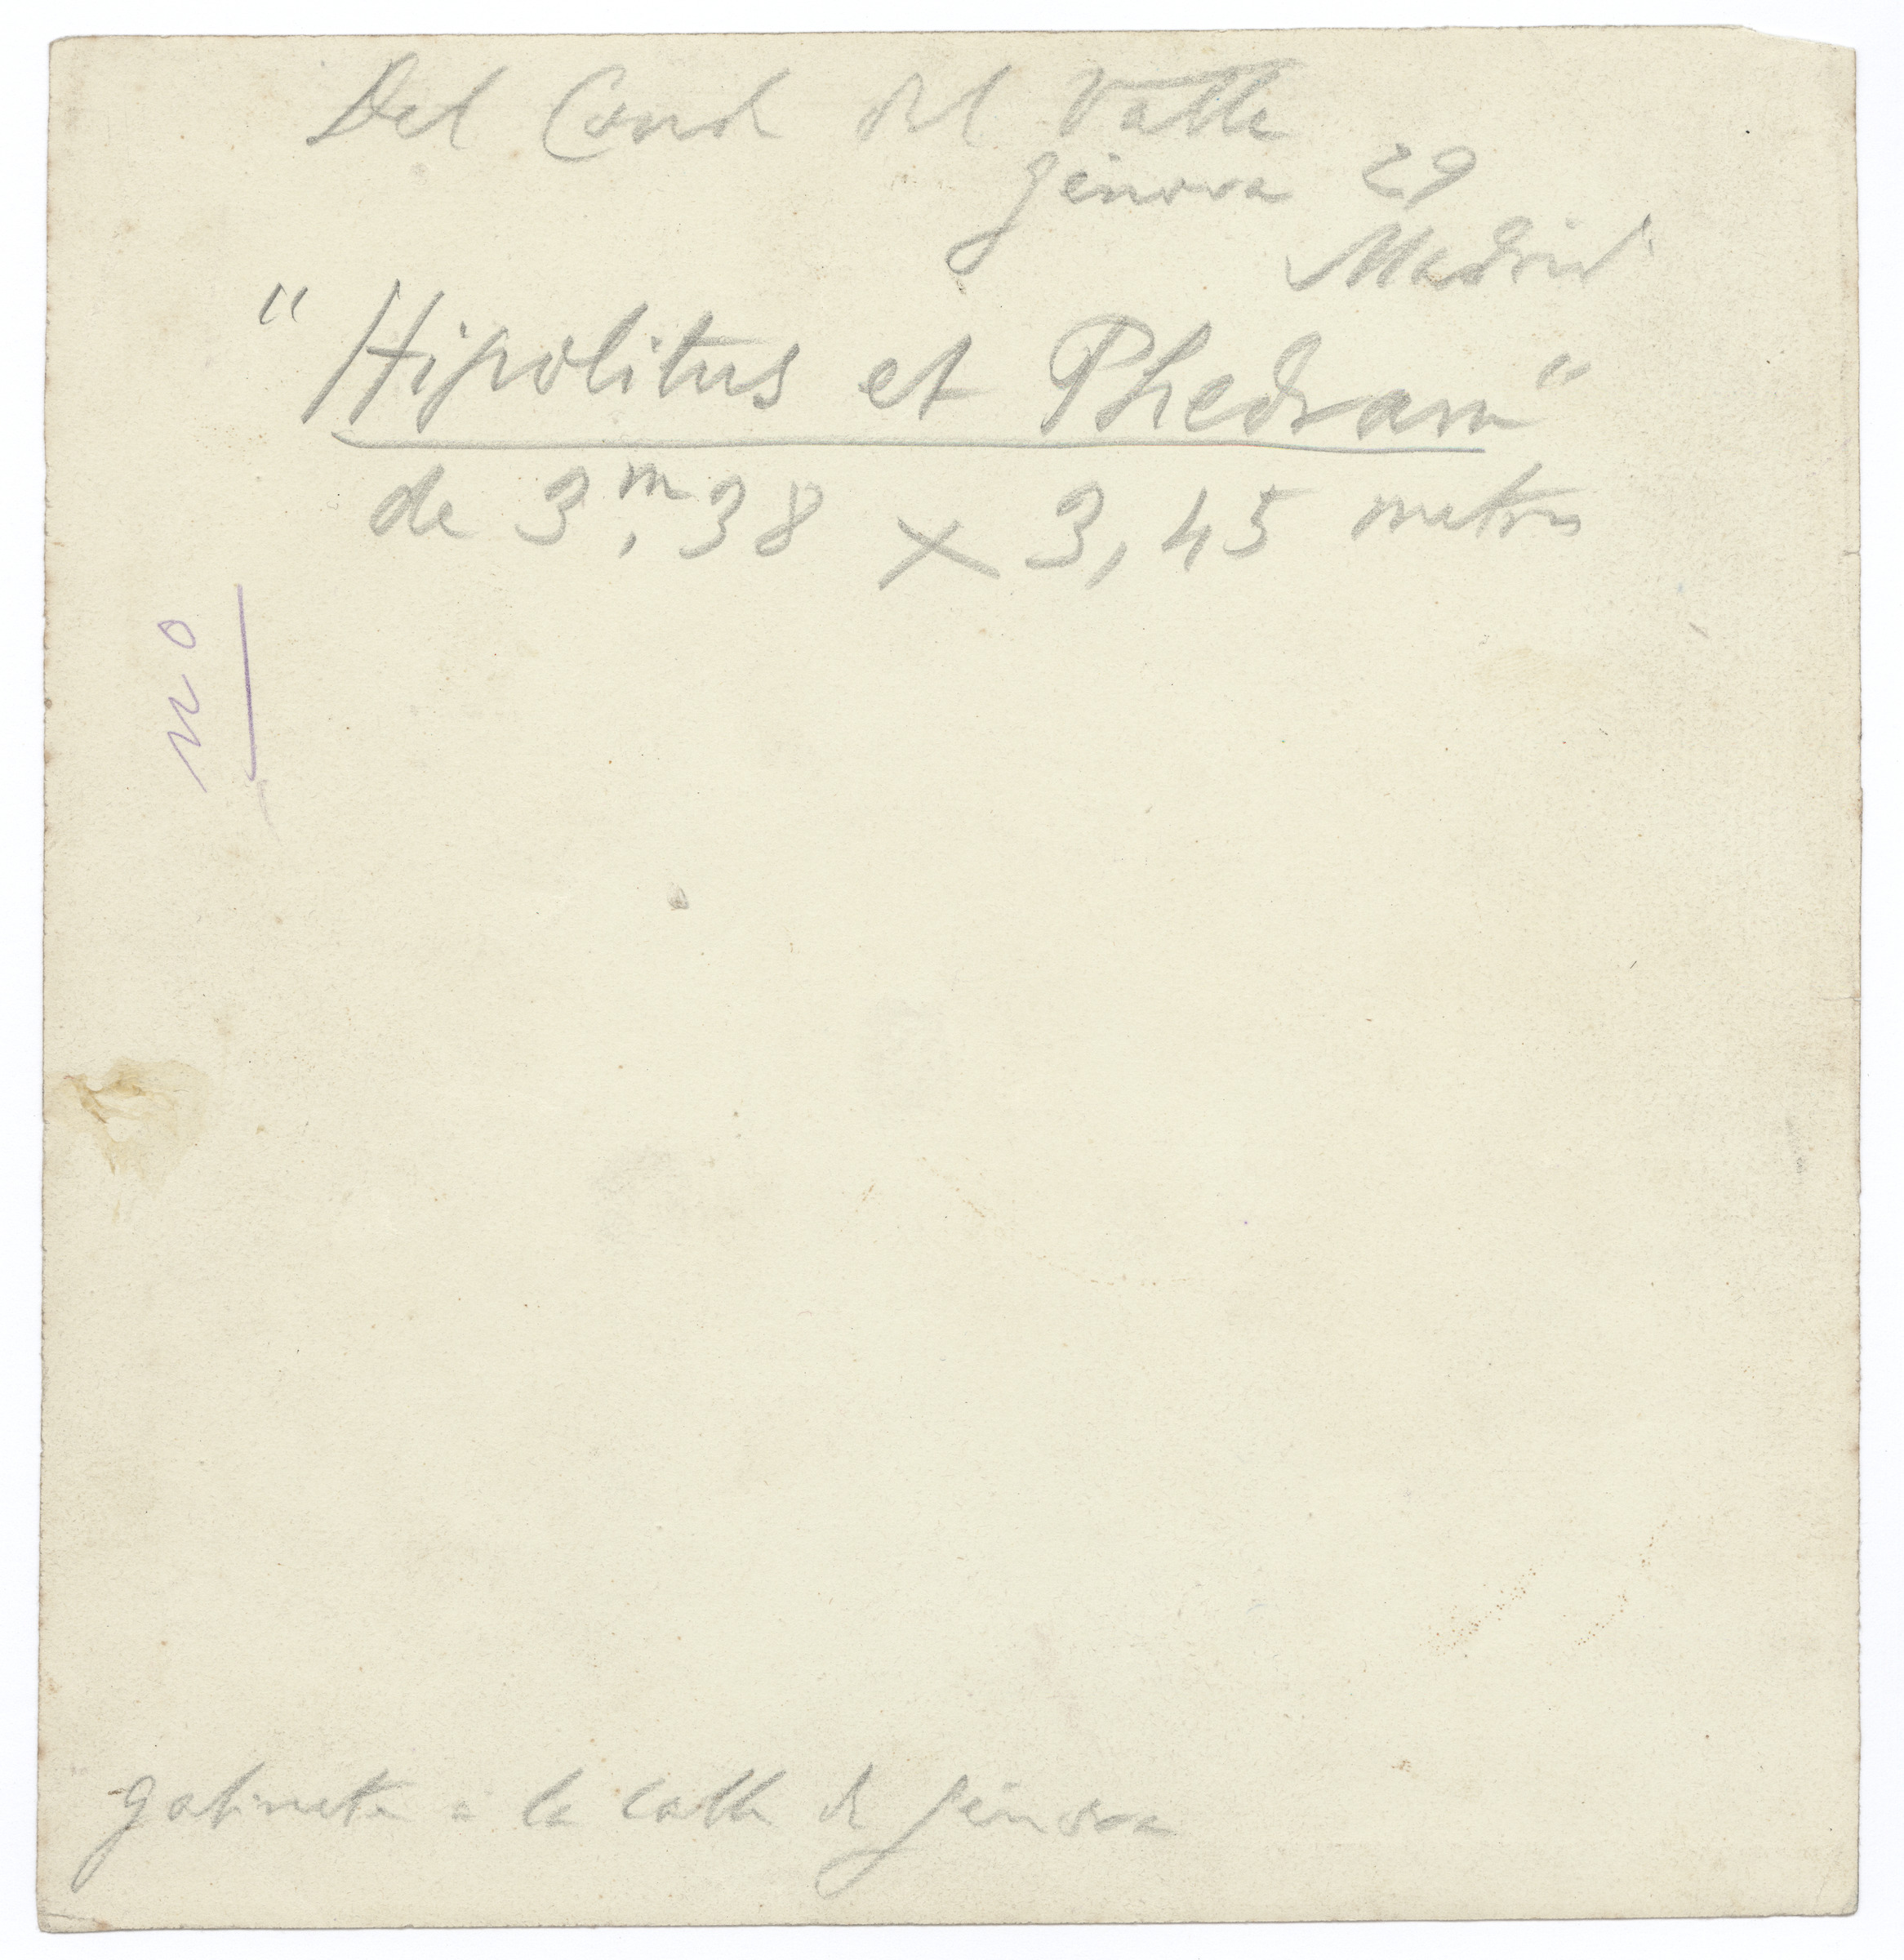 Del Conde del Valle
Génova 29
Madrid
"Hipolitus et Phedram"
de 3,m38 x 3,45 metros
no
gabinete a la calle de Génova